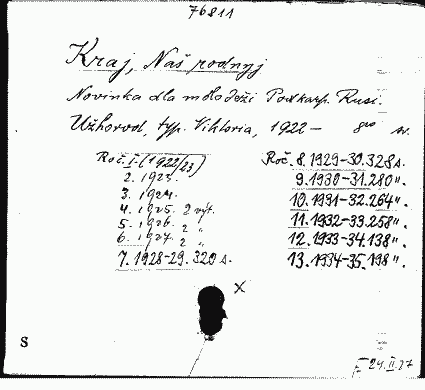 76811
Kraj, Naš rodnyj
Novinka dla moloďeži Podkarp. Rusi.
Užhorod, typ. Viktoria, 1922 – 8vo sv.
Roč. I. (1922/23)
2. 1923
3. 1924.
4. 1925. 2 výt.
5. 1926. 2 "
6. 1927. 2 "
7. 1928-29. 320 s.
Roč. 8. 1929-30. 328 s.
9. 1930-31. 280 ".
10. 1931-32. 264 ".
11. 1932-33. 258 ".
12. 1933-34. 138 ".
13. 1934-35. 198 ".
x
S
24.II.27